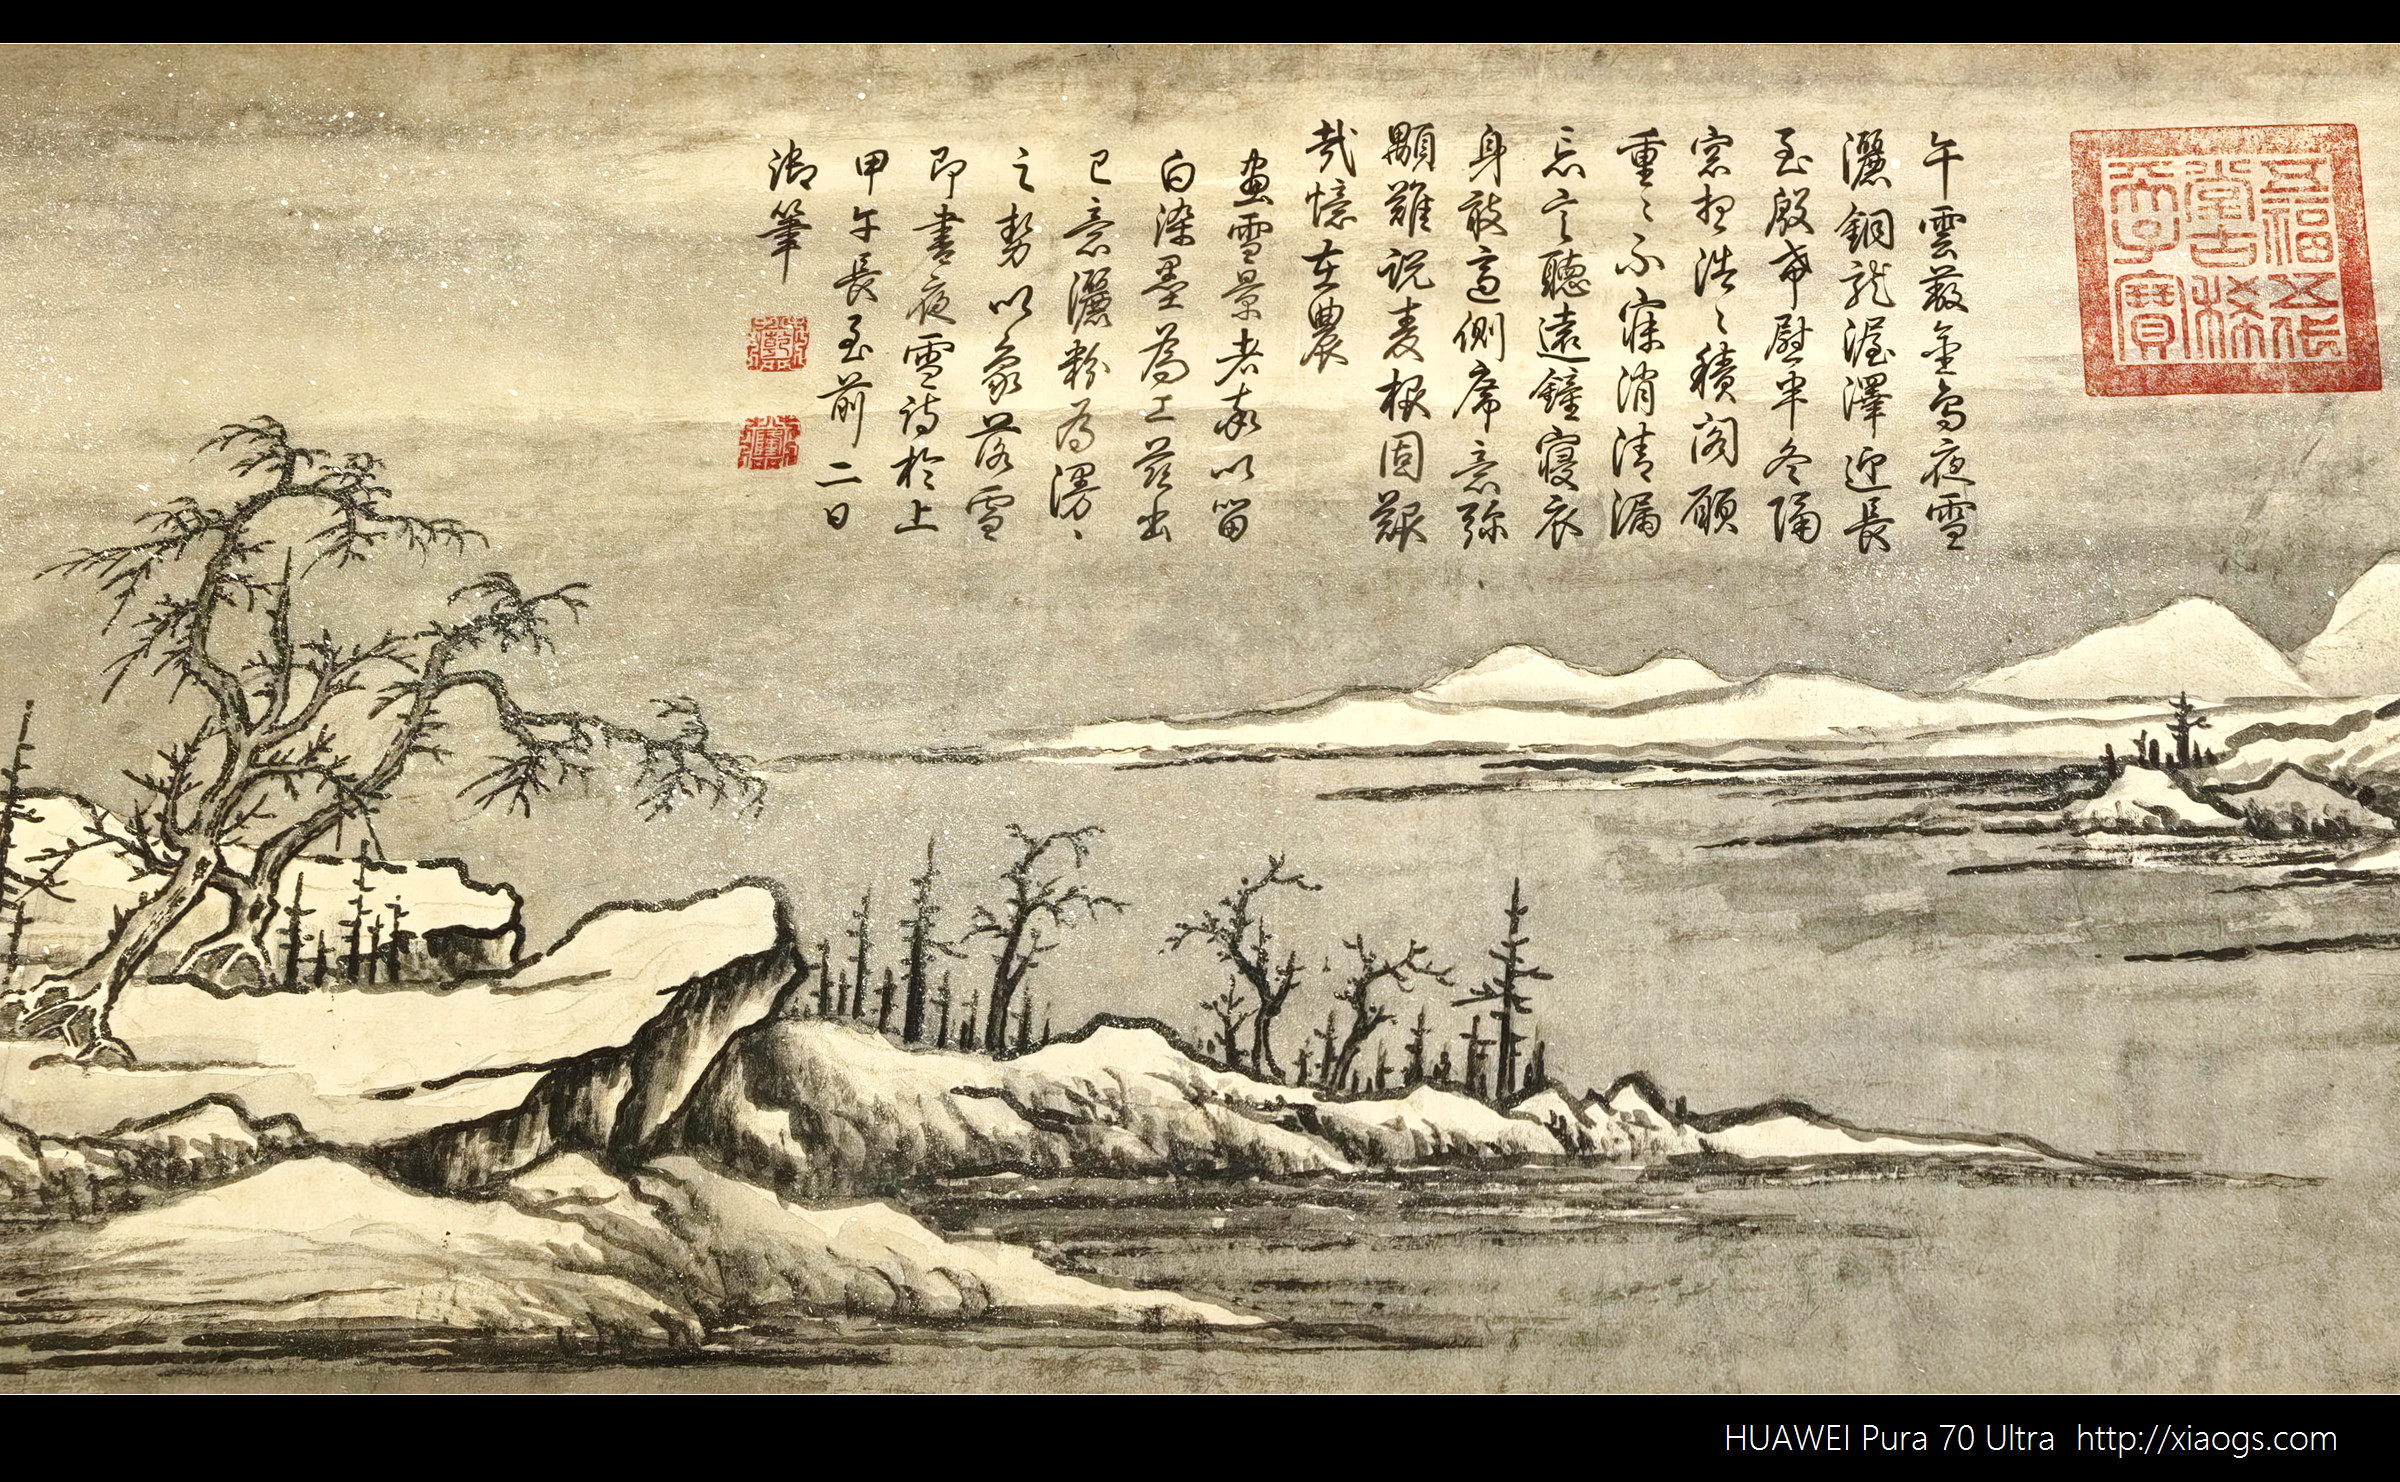 五福五代
堂古稀
天子寶
午雲薮金烏夜雪
灑銅龍渥澤迎長
至殷希慰半冬隔
窓想浩〻積閣願
重〻不寐消清漏
忘言聽遠鐘寢衣
身敢適側席意弥
顒難說麦根固艱
哉憶在農
畫雪景者率以留
白染墨為工茲出
己意灑粉為漫〻
之勢以象落雪
即書夜雪詩於上
甲午長至前二日
御筆
HUAWEI Pura 70 Ultra http://xiaogs.com